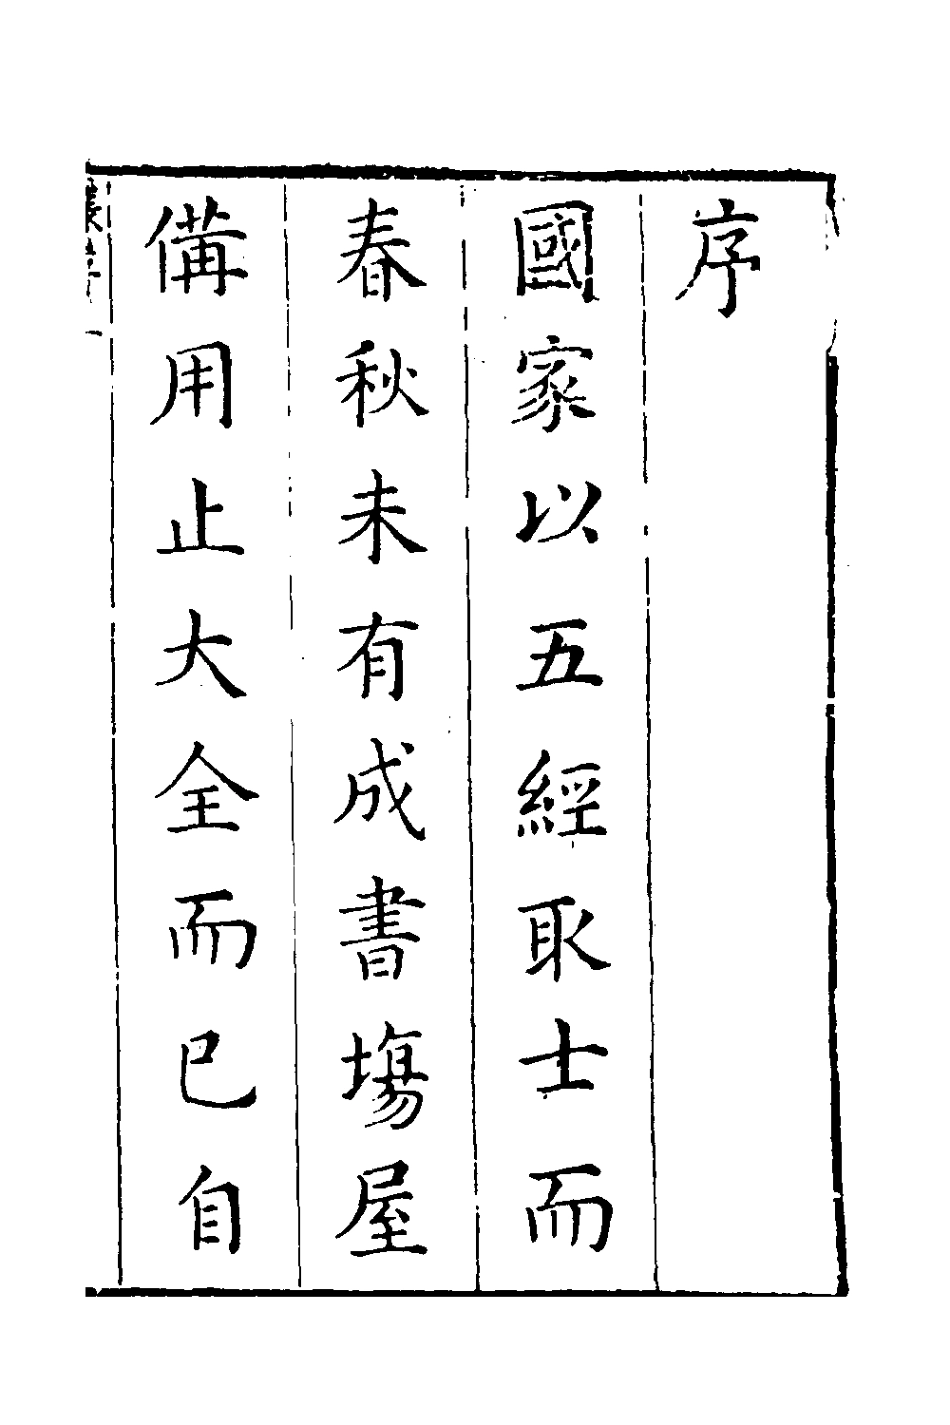 序
國家以五經取士而
春秋未有成書塲屋
備用止大全而已自